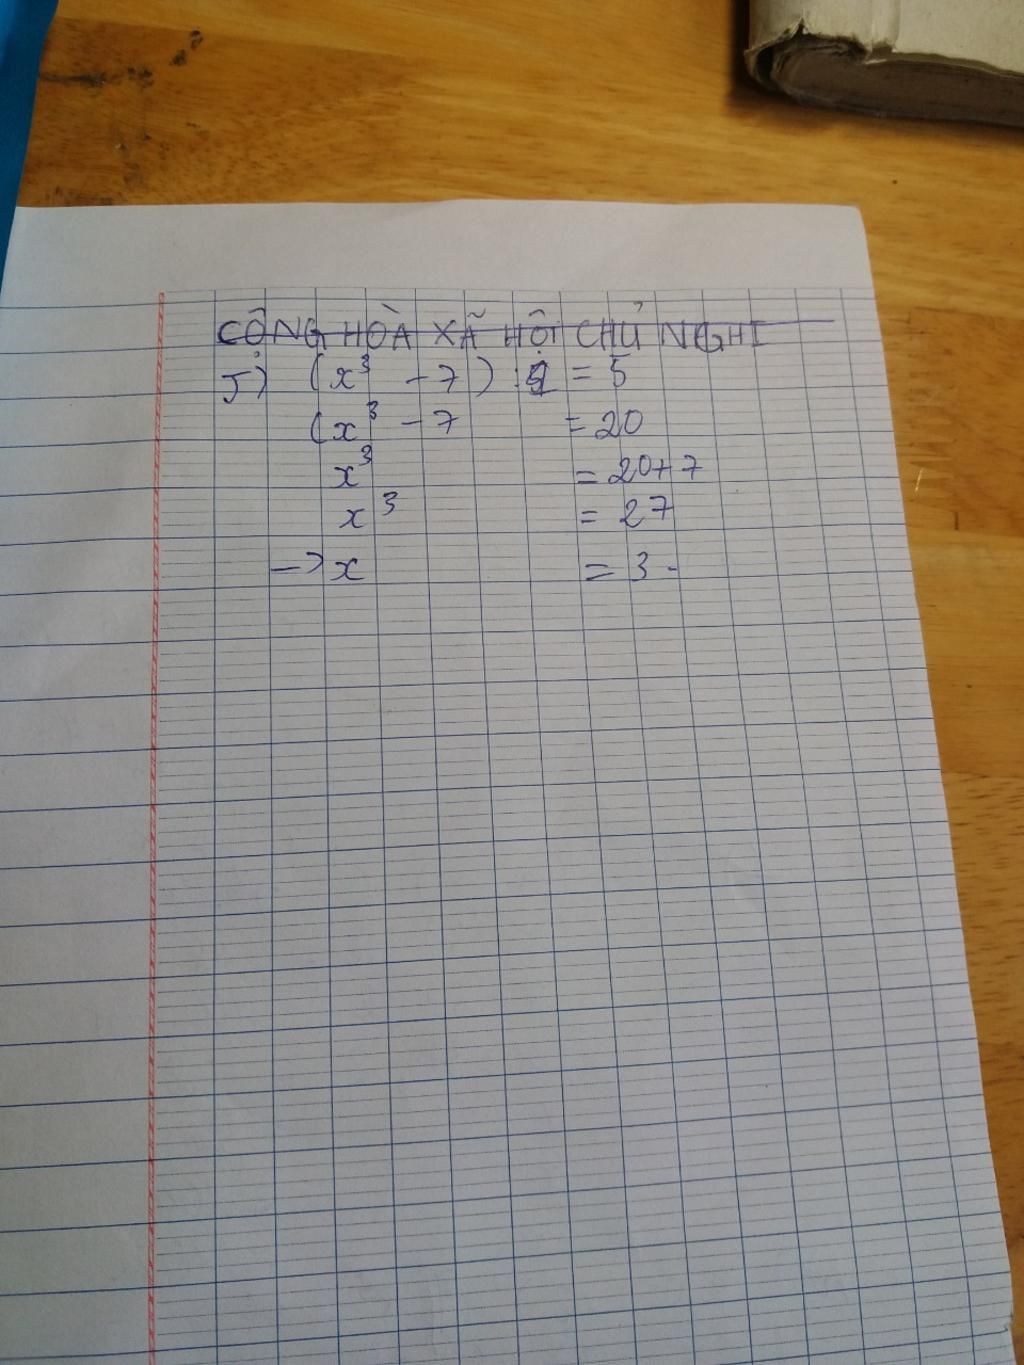 CỘNG HÒA XÃ HỘI CHỦ NGHI
J) (x³ - 7) : 4 = 5
(x³ - 7 = 20
x³ = 20+7
x³ = 27
→ x = 3 -